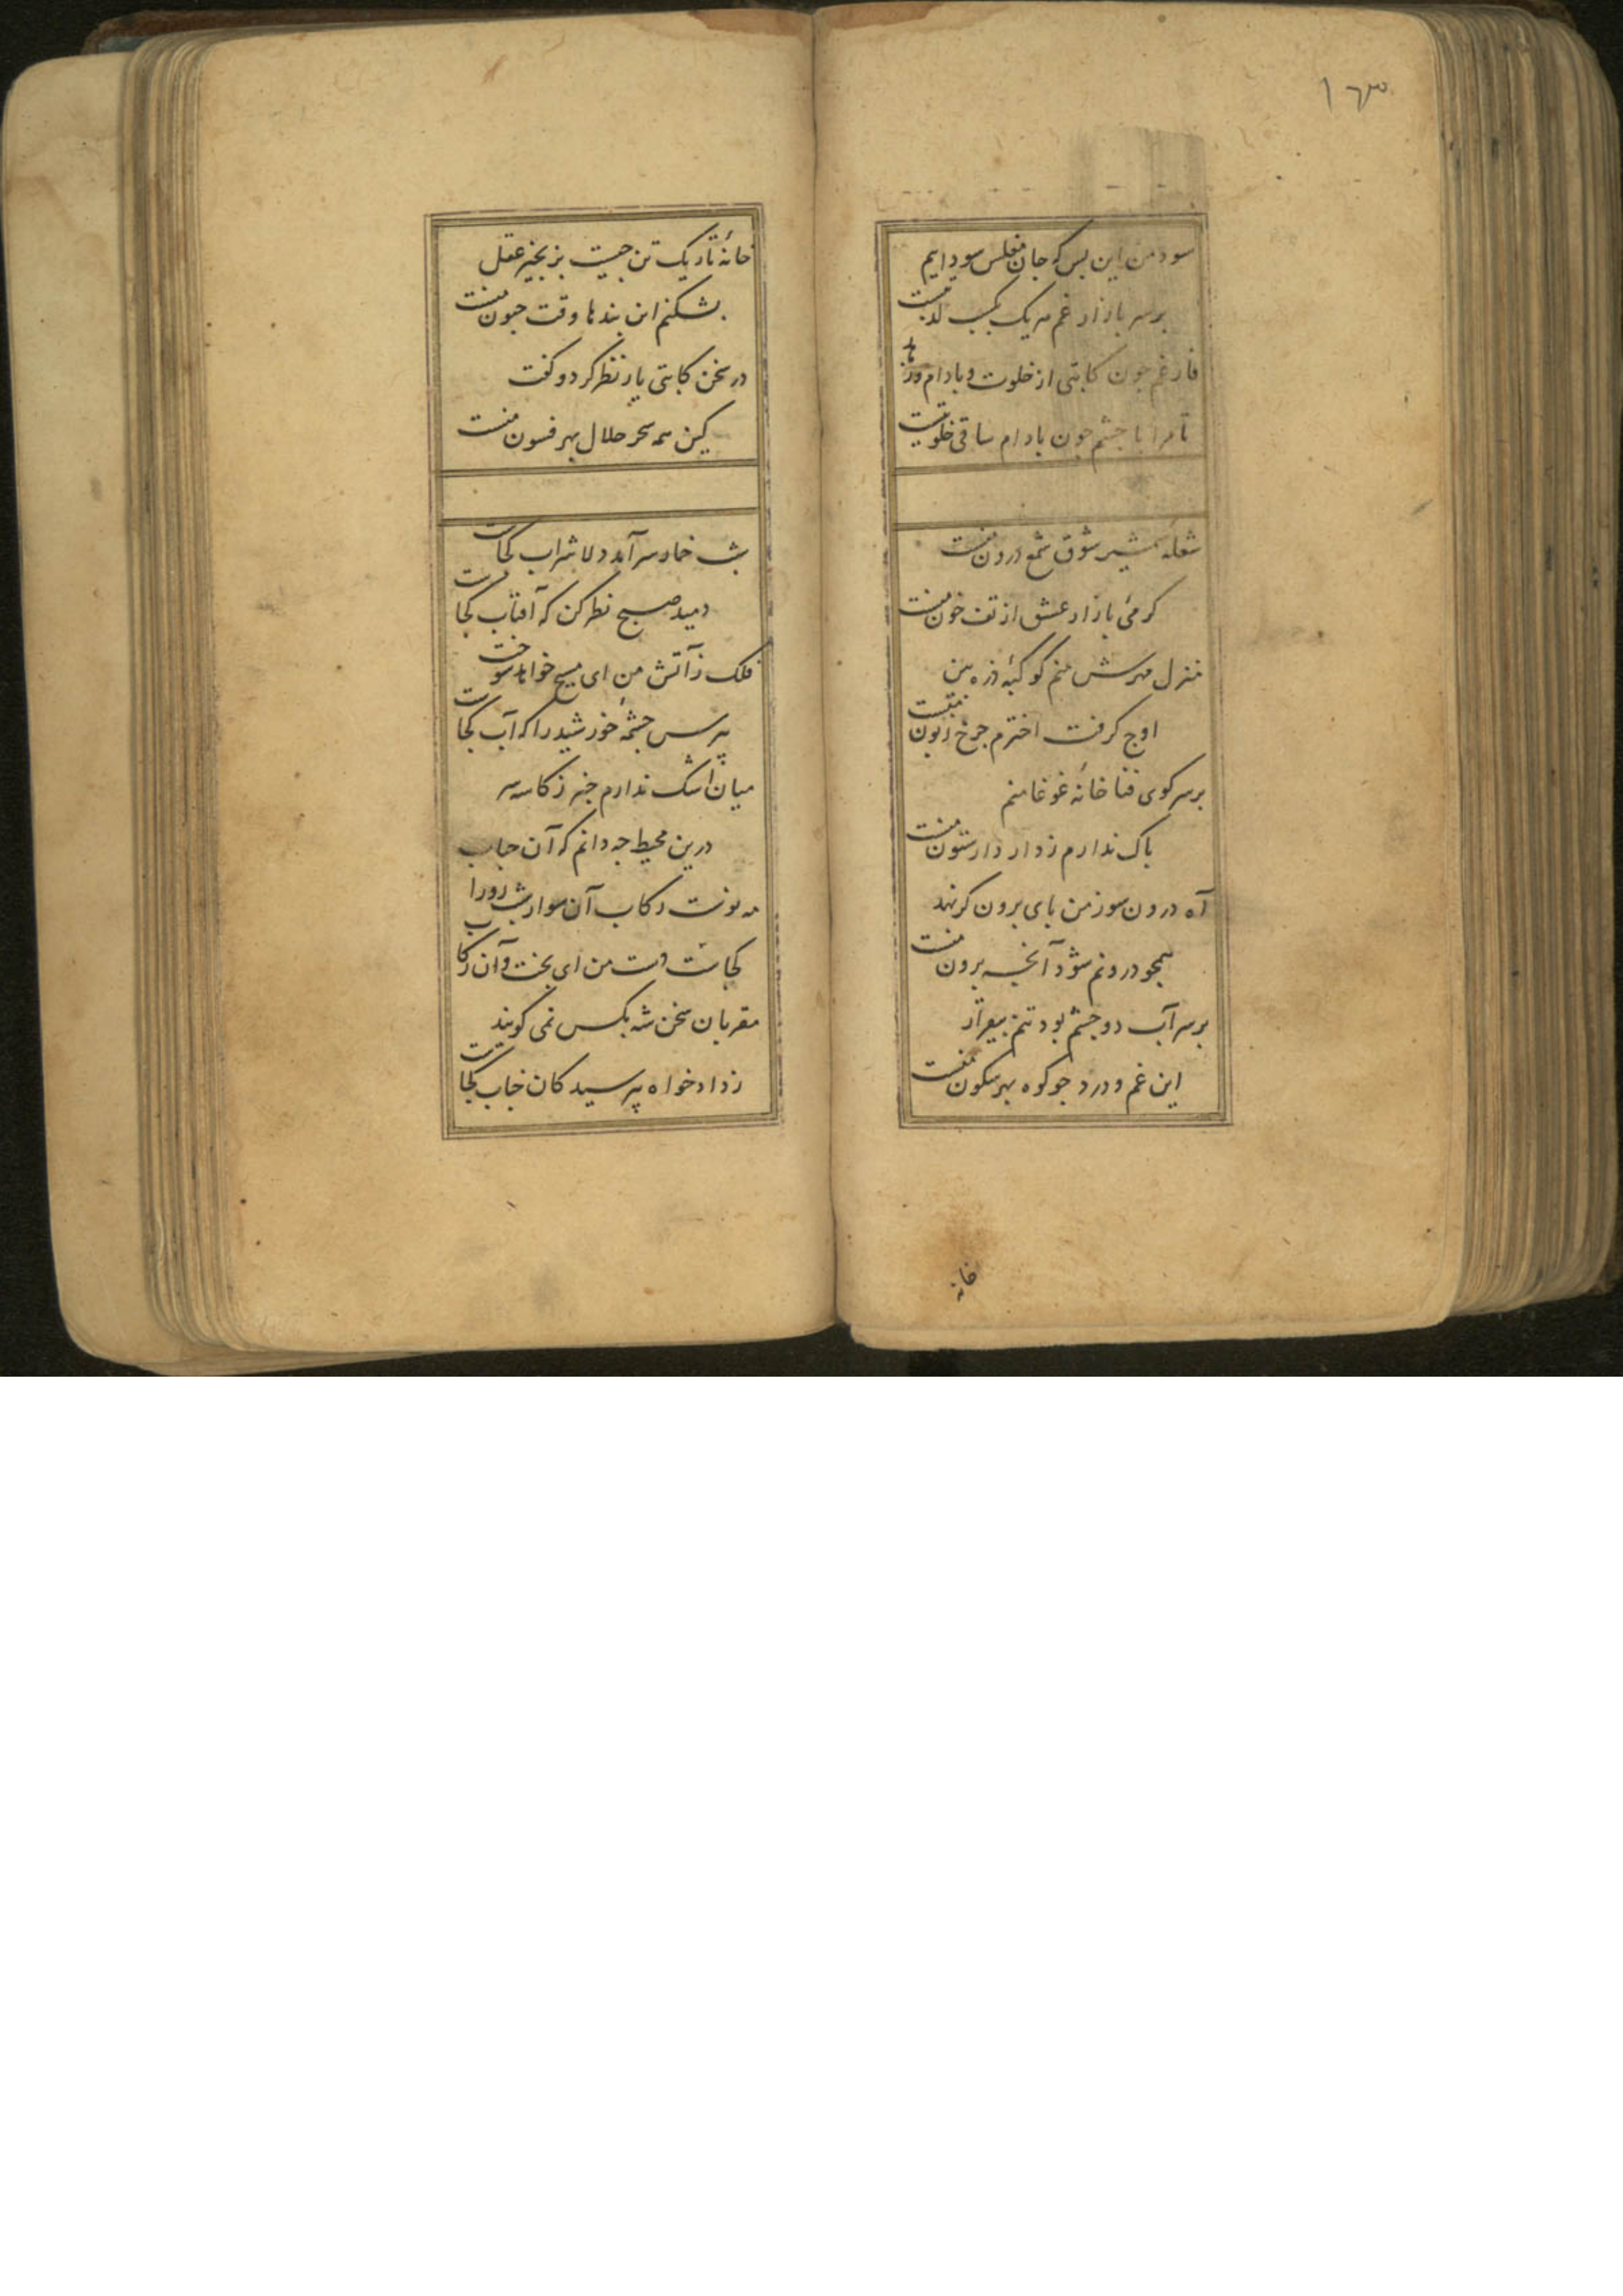 ۱۶۳
سود من این بس که جان مفلس سودایم
بر سر بازار غم هر یک بکسب
فارغم چون کاتبی از خلوت و بادام ورزها
تا مرا با چشم چون بادام ساقی خلوتیست
شعله شمشیر شوق شمع درون منست
کرمی بازار عشق از تف خون منست
منزل مهرش منم کوکبهٔ ذره بین
اوج کرفت اخترم چرخ زبون منست
بر سر کوی فنا خانهٔ غوغا منم
باک ندارم ز دار دار ستون منست
آه درون سوز من پای برون کر نهد
همچو درونم شود آنچه برون منست
بر سر آب دو چشم بود تنم بیقرار
این غم و درد چو کوه بهر سکون منست
خانه
خانهٔ تاریک تن چیست بزنجیر عقل
بشکنم این بندها وقت جنون منست
در سخن کاتبی یار نظر کرد و کفت
کین همه سحر حلال بهر فسون منست
شب خمار سر آمد دلا شراب کجاست
دمید صبح نظر کن که آفتاب کجاست
فلک ز آتش من ای مسیح خواهد سوخت
بپرس چشمهٔ خورشید را که آب کجاست
میان اشک ندارم خبر ز کاسه سر
درین محیط چه دانم که آن حباب
مه نوست رکاب آن سوار شب رو را
کجاست دست من ای بخت و آن رکاب
مقربان سخن شه بکس نمی کویند
ز دادخواه بپرسید کان جناب کجاست